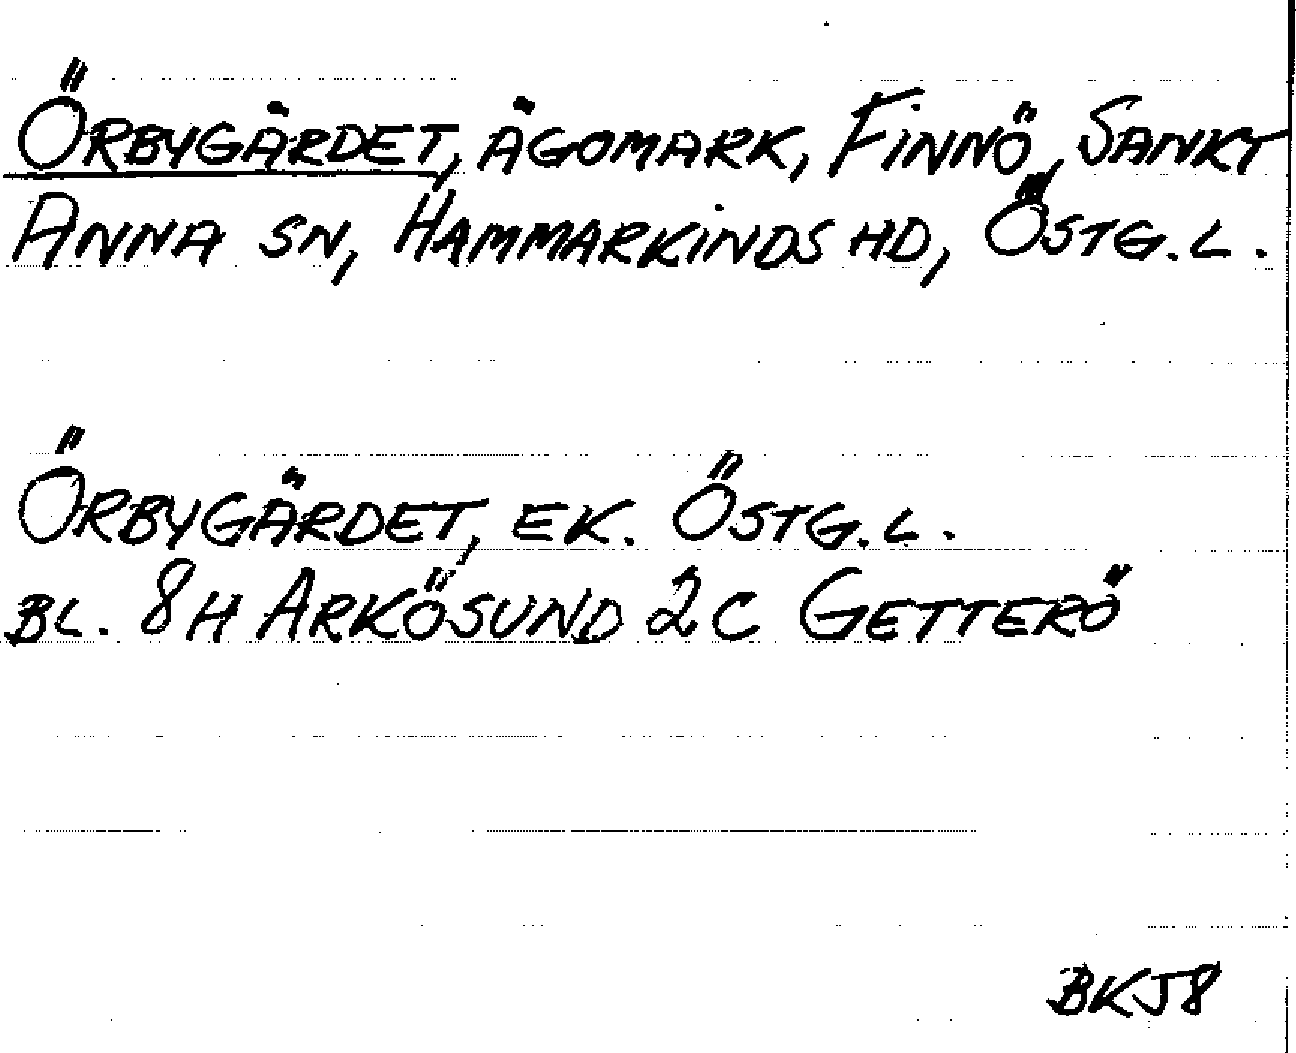 ÖRBYGÄRDET, ÄGOMARK, FINNÖ, SANKT
ANNA SN, HAMMARKINDS HD, ÖSTG. L.
ÖRBYGÄRDET, EK. ÖSTG. L.
BL. 8H ARKÖSUND 2C GETTERÖ
BKJ8